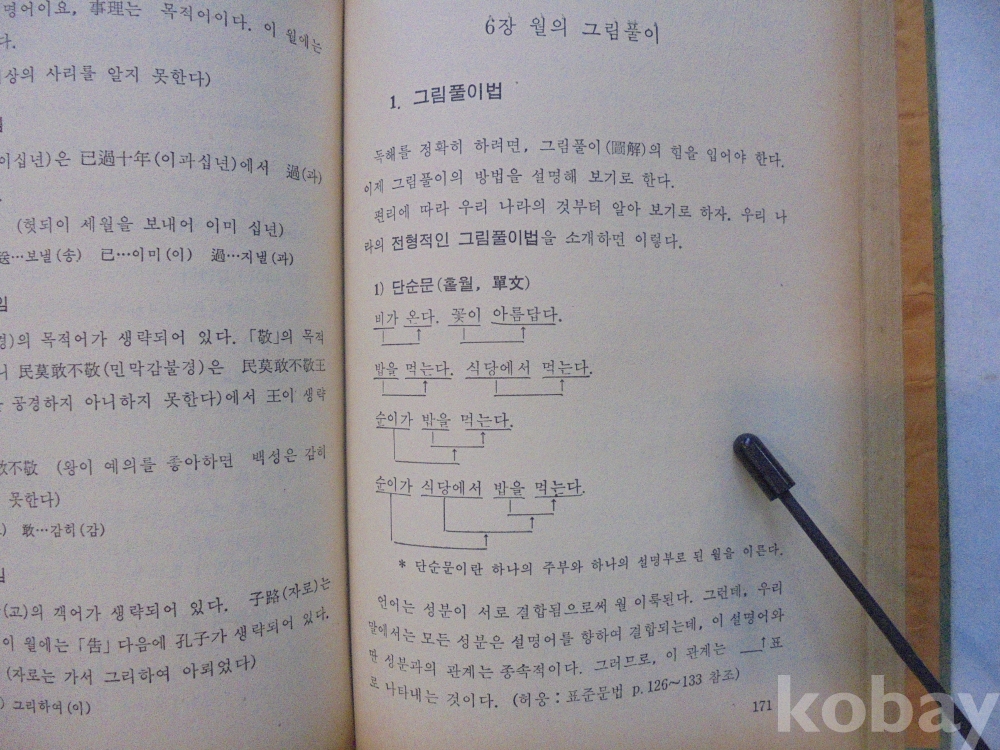 명어이요, 事理는 목적어이다. 이 월에는
다.
상의 사리를 알지 못한다)
이십년)은 已過十年(이과십년)에서 過(과)
(헛되이 세월을 보내어 이미 십년)
…보낼(송) 已…이미(이) 過…지낼(과)
임
경)의 목적어가 생략되어 있다. 「敬」의 목적
니 民莫敢不敬(민막감불경)은 民莫敢不敬王
공경하지 아니하지 못한다)에서 王이 생략
敢不敬 (왕이 예의를 좋아하면 백성은 감히
못한다)
敢…감히(감)
임
(고)의 객어가 생략되어 있다. 子路(자로)는
이 월에는 「告」 다음에 孔子가 생략되어 있다.
(자로는 가서 그리하여 아뢰었다)
그리하여(이)
6장 월의 그림풀이
1. 그림풀이법
독해를 정확히 하려면, 그림풀이(圖解)의 힘을 입어야 한다.
이제 그림풀이의 방법을 설명해 보기로 한다.
편리에 따라 우리 나라의 것부터 알아 보기로 하자. 우리 나
라의 전형적인 그림풀이법을 소개하면 이렇다.
1) 단순문(홑월, 單文)
비가 온다. 꽃이 아름답다.
밥을 먹는다. 식당에서 먹는다.
순이가 밥을 먹는다.
순이가 식당에서 밥을 먹는다.
* 단순문이란 하나의 주부와 하나의 설명부로 된 월을 이른다.
언어는 성분이 서로 결합됨으로써 월 이룩된다. 그런데, 우리
말에서는 모든 성분은 설명어를 향하여 결합되는데, 이 설명어와
딴 성분과의 관계는 종속적이다. 그러므로, 이 관계는 __↑표
로 나타내는 것이다. (허웅 : 표준문법 p.126~133 참조)
171
kobay